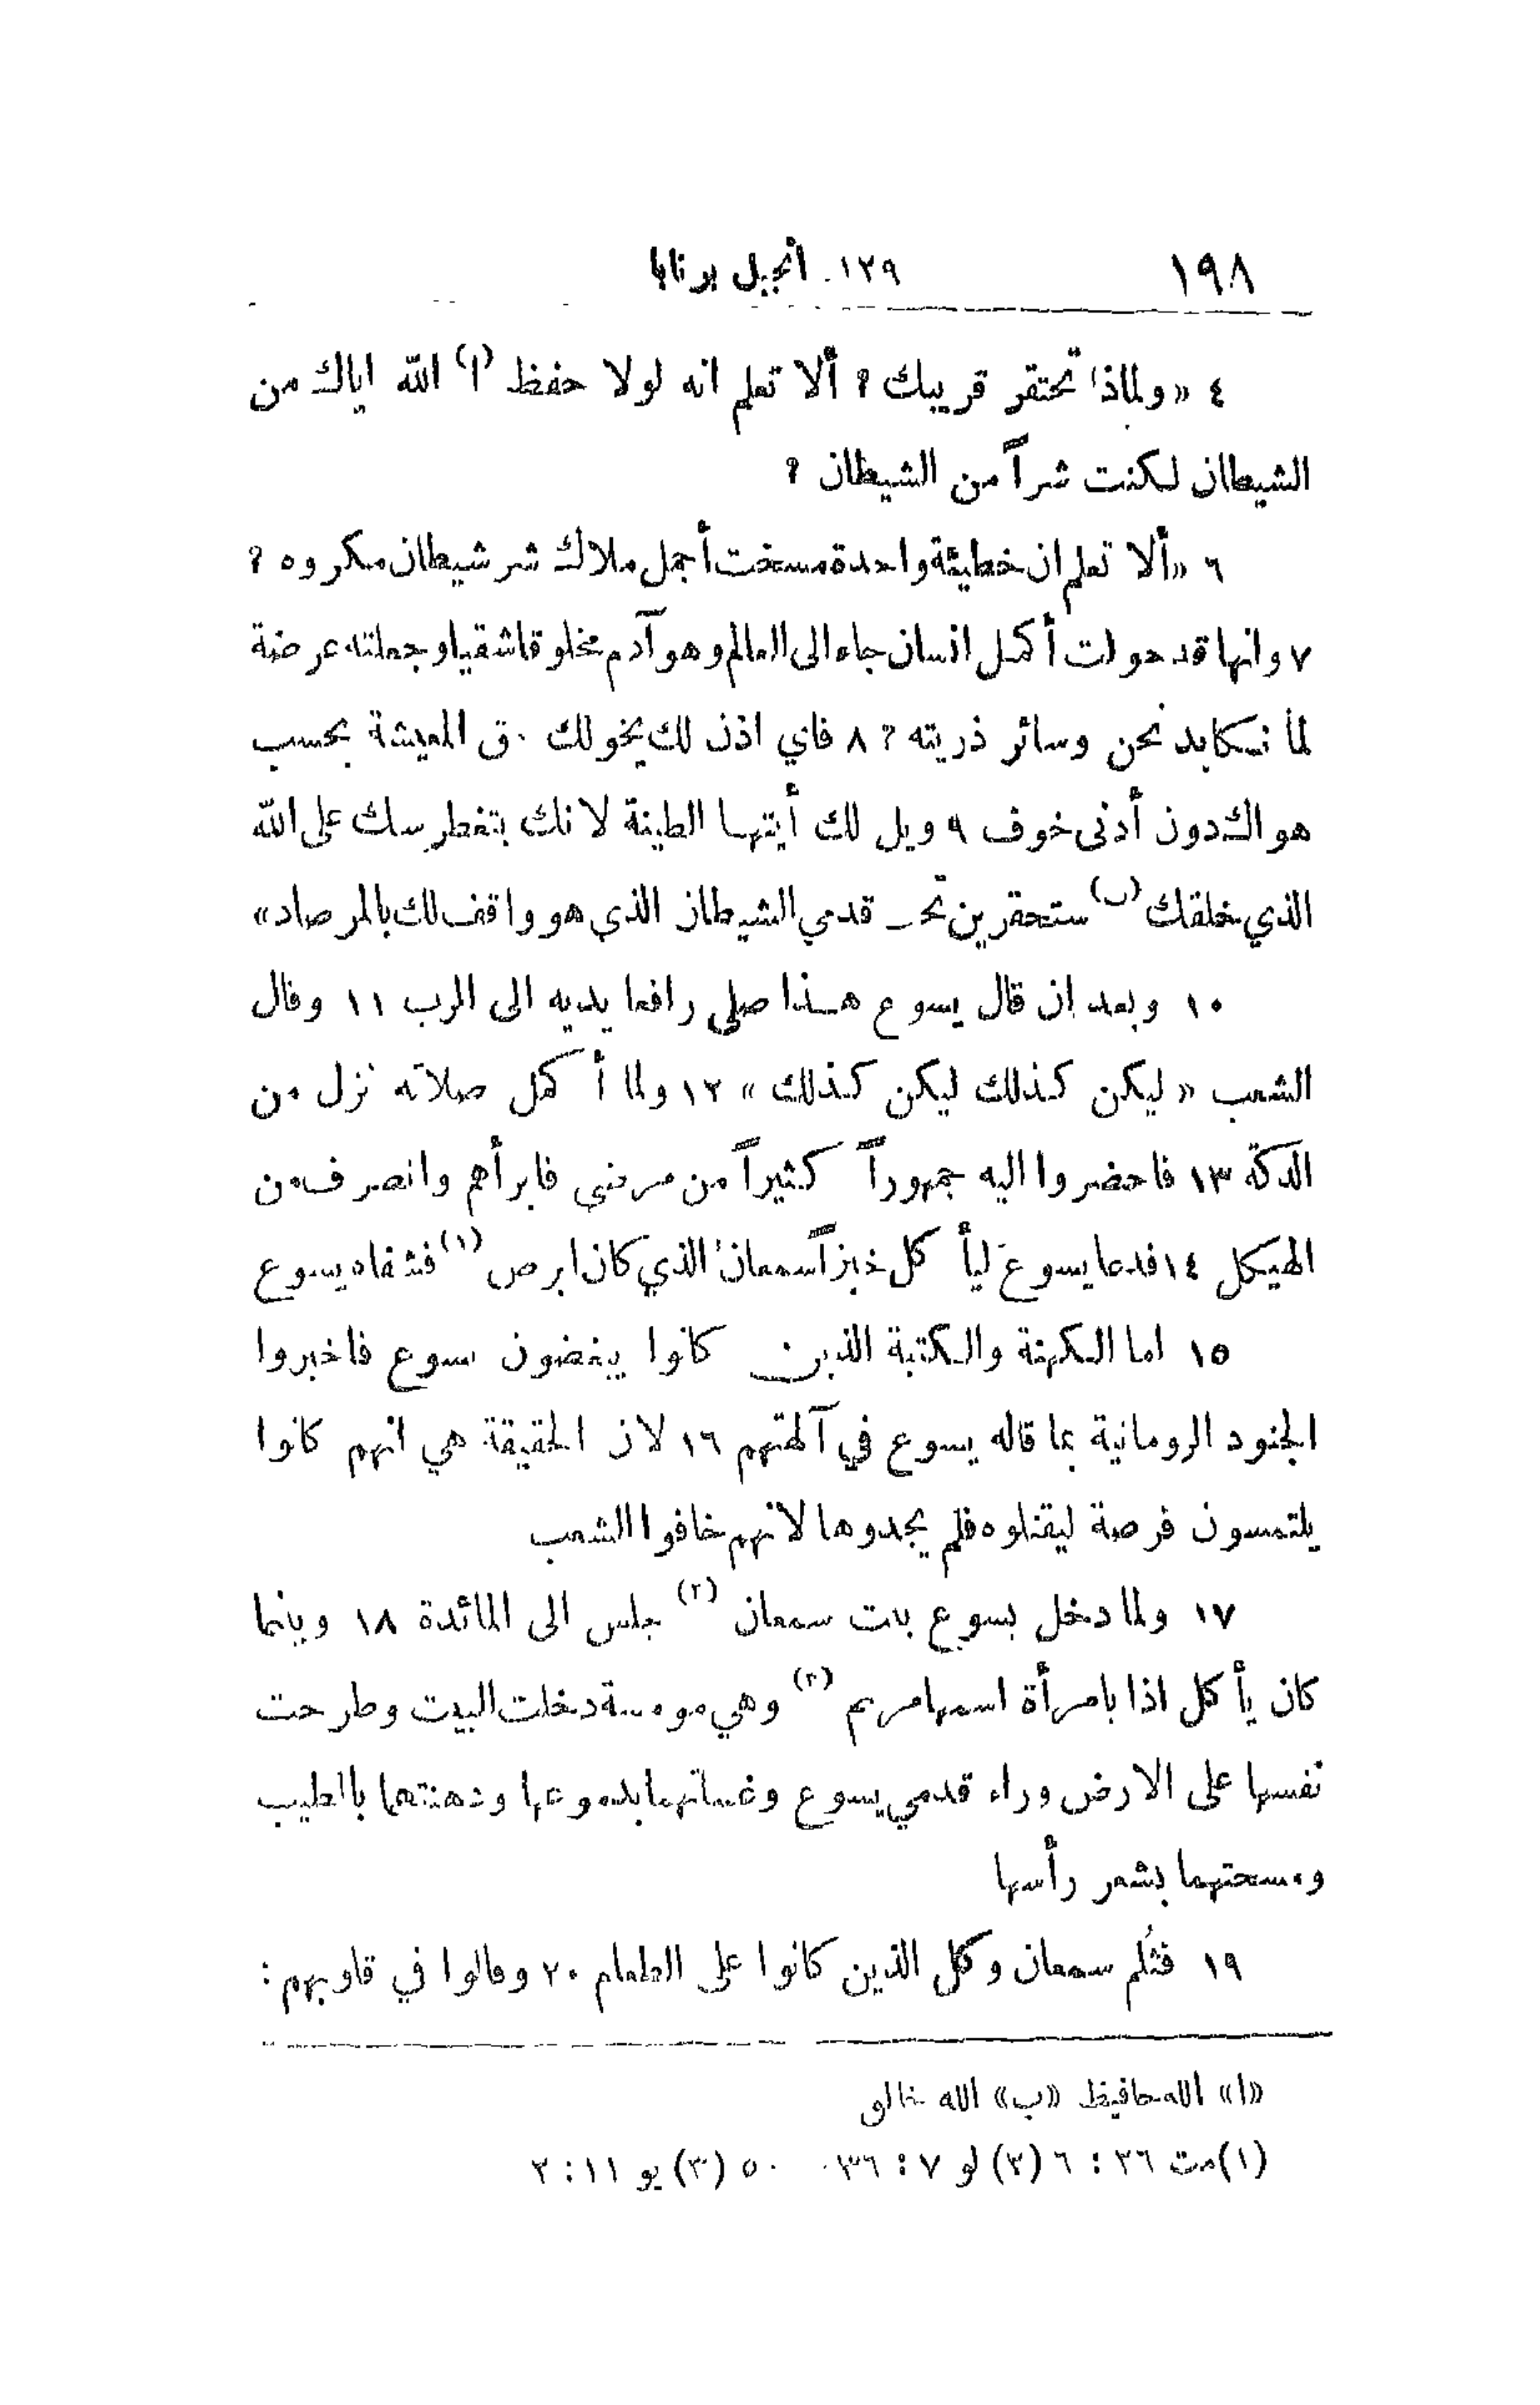 ١٩٨ ١٢٩. أنجيل برنابا
٤ «ولماذا تحتقر قريبك ? ألا تعلم انه لولا حفظ (ا) الله اياك من
الشيطان لكنت شراً من الشيطان ?
٦ «ألا تعلم ان خطيئة واحدة مسخت أجمل ملاك شر شيطان مكروه ?
٧ وانها قد حولت أكمل انسان جاء الى العالم وهو آدم مخلوقا شقيا وجعلته عرضة
لما نكابد نحن وسائر ذريته ? ٨ فاي اذن لك يخولك ق المعيشة بحسب
هواك دون أدنى خوف ٩ ويل لك أيتها الطينة لانك بتغطرسك على الله
الذي خلقك (ب) ستحقرين تحت قدمي الشيطان الذي هو واقف لك بالمرصاد»
١٠ وبعد ان قال يسوع هذا صلى رافعا يديه الى الرب ١١ وقال
الشعب « ليكن كذلك ليكن كذلك » ١٢ ولما أكمل صلاته نزل من
الدكة ١٣ فاحضروا اليه جمهوراً كثيراً من مرضى فابرأهم وانصرف من
الهيكل ١٤ فدعا يسوعَ ليأكل خبزاً سمعانُ الذي كان ابرص (١) فشفاه يسوع
١٥ اما الكهنة والكتبة الذين كانوا يبغضون يسوع فاخبروا
الجنود الرومانية بما قاله يسوع في آلهتهم ١٦ لان الحقيقة هي انهم كانوا
يلتمسون فرصة ليقتلوه فلم يجدوها لانهم خافوا الشعب
١٧ ولما دخل يسوع بيت سمعان (٢) جلس الى المائدة ١٨ وبينما
كان يأكل اذا بامرأة اسمها مريم (٣) وهي مومسة دخلت البيت وطرحت
نفسها على الارض وراء قدمي يسوع وغسلتهما بدموعها ودهنتهما بالطيب
ومسحتهما بشعر رأسها
١٩ فثُلم سمعان وكل الذين كانوا على الطعام ٢٠ وقالوا في قلوبهم :
«ا» الله حافيظ «ب» الله خالق
(١) مت ٢٦ : ٦ (٢) لو ٧ : ٣٦. ٥٠ (٣) يو ١١ : ٢